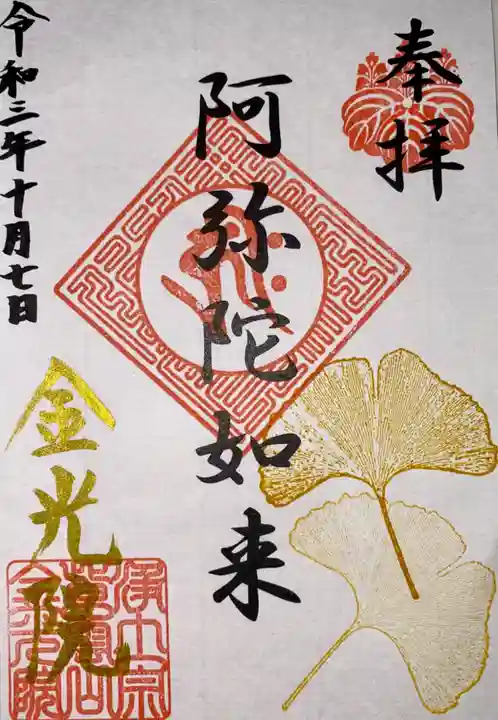 奉拝
阿弥陀如来
令和三年十月七日
金光院
浄土宗
金光院